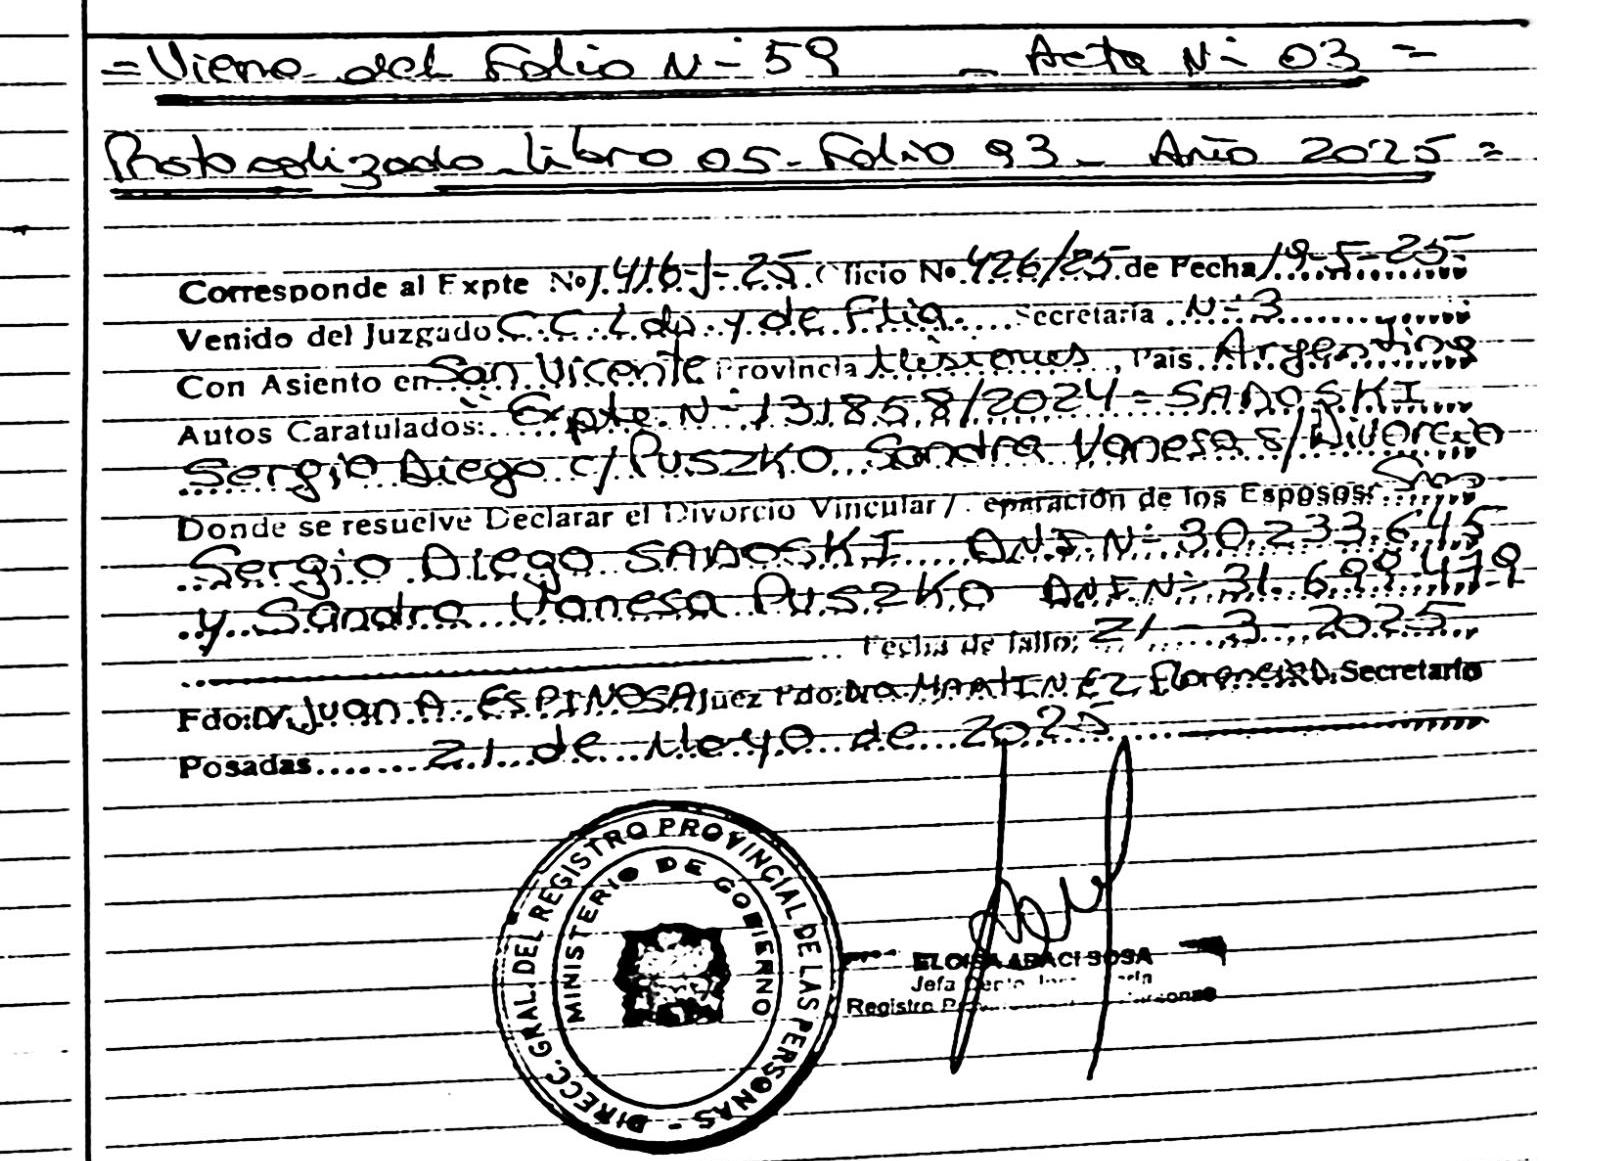 = Viene del Folio N- 59 - Acta N- 03 =
Protocolizado Libro 05 - Folio 93 - Año 2025 =
Corresponde al Expte Nº 1.416-J-25 Oficio Nº 426/25 de Fecha 19-5-25
Venido del Juzgado C.C. Lab. y de Flia. Secretaría N-3
Con Asiento en San Vicente Provincia Misiones, País Argentina
Autos Caratulados: "Expte. N- 131858/2024 = SADOSKI
Sergio Diego c/ PUSZKO Sandra Vanesa s/ Divorcio
Donde se resuelve Declarar el Divorcio Vincular / Separación de los Esposos:
Sergio Diego SADOSKI D.N.I. N- 30.233.645
y Sandra Vanesa PUSZKO D.N.I. N- 31.699.479
Fecha de fallo: 21-3-2025
Fdo: Dr. Juan A. ESPINOSA Juez Fdo: Dra MARTINEZ, Florencia D. Secretario
Posadas 21 de Mayo de 2025
DIRECC. GRAL. DEL REGISTRO PROVINCIAL DE LAS PERSONAS -
MINISTERIO DE GOBIERNO
ELOISA ARACI SOSA
Jefa Dpto.
Registro Personas